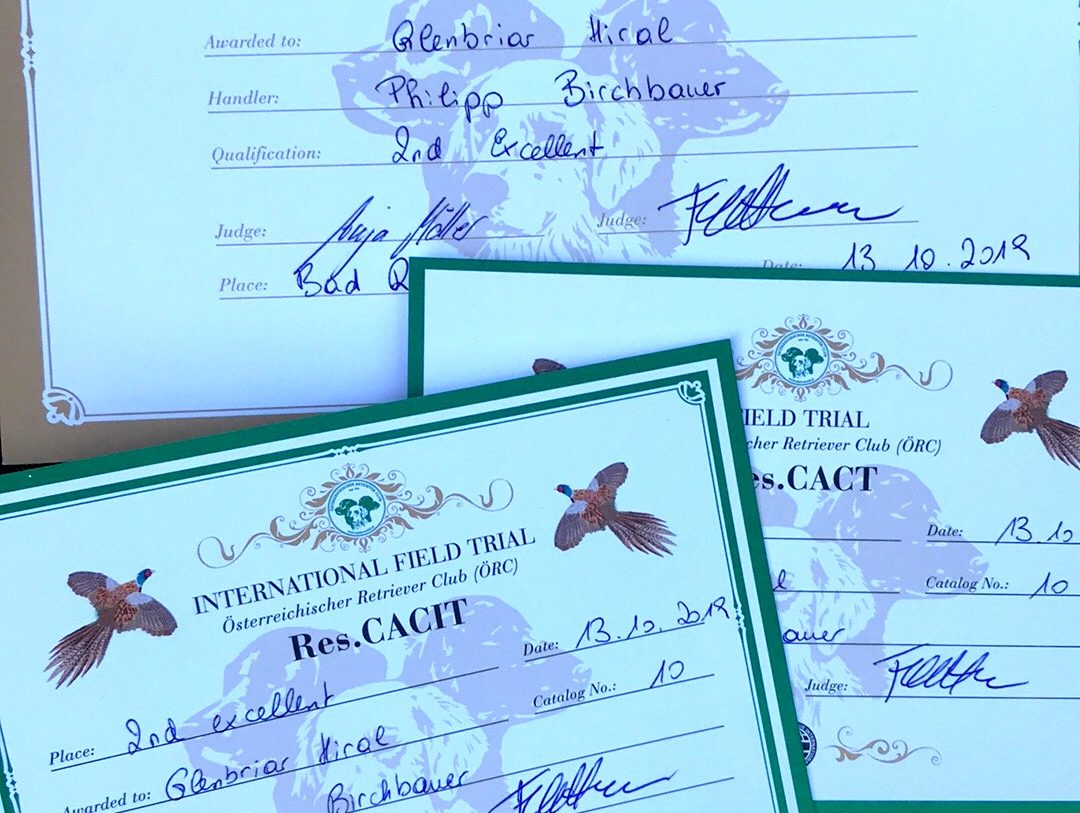 Awarded to: Glenbriar Hiral
Handler: Philipp Birchbauer
Qualification: 2nd Excellent
Judge: Judge:
Place: Bad Date: 13.10.2019
FIELD TRIAL
Retriever Club (ÖRC)
Res.CACT
Date: 13.10
Catalog No.: 10
auer
Judge:
INTERNATIONAL FIELD TRIAL
Österreichischer Retriever Club (ÖRC)
Res.CACIT
Date: 13.10.2019
Place: 2nd excellent Catalog No.: 10
Awarded to: Glenbriar Hiral
Birchbauer